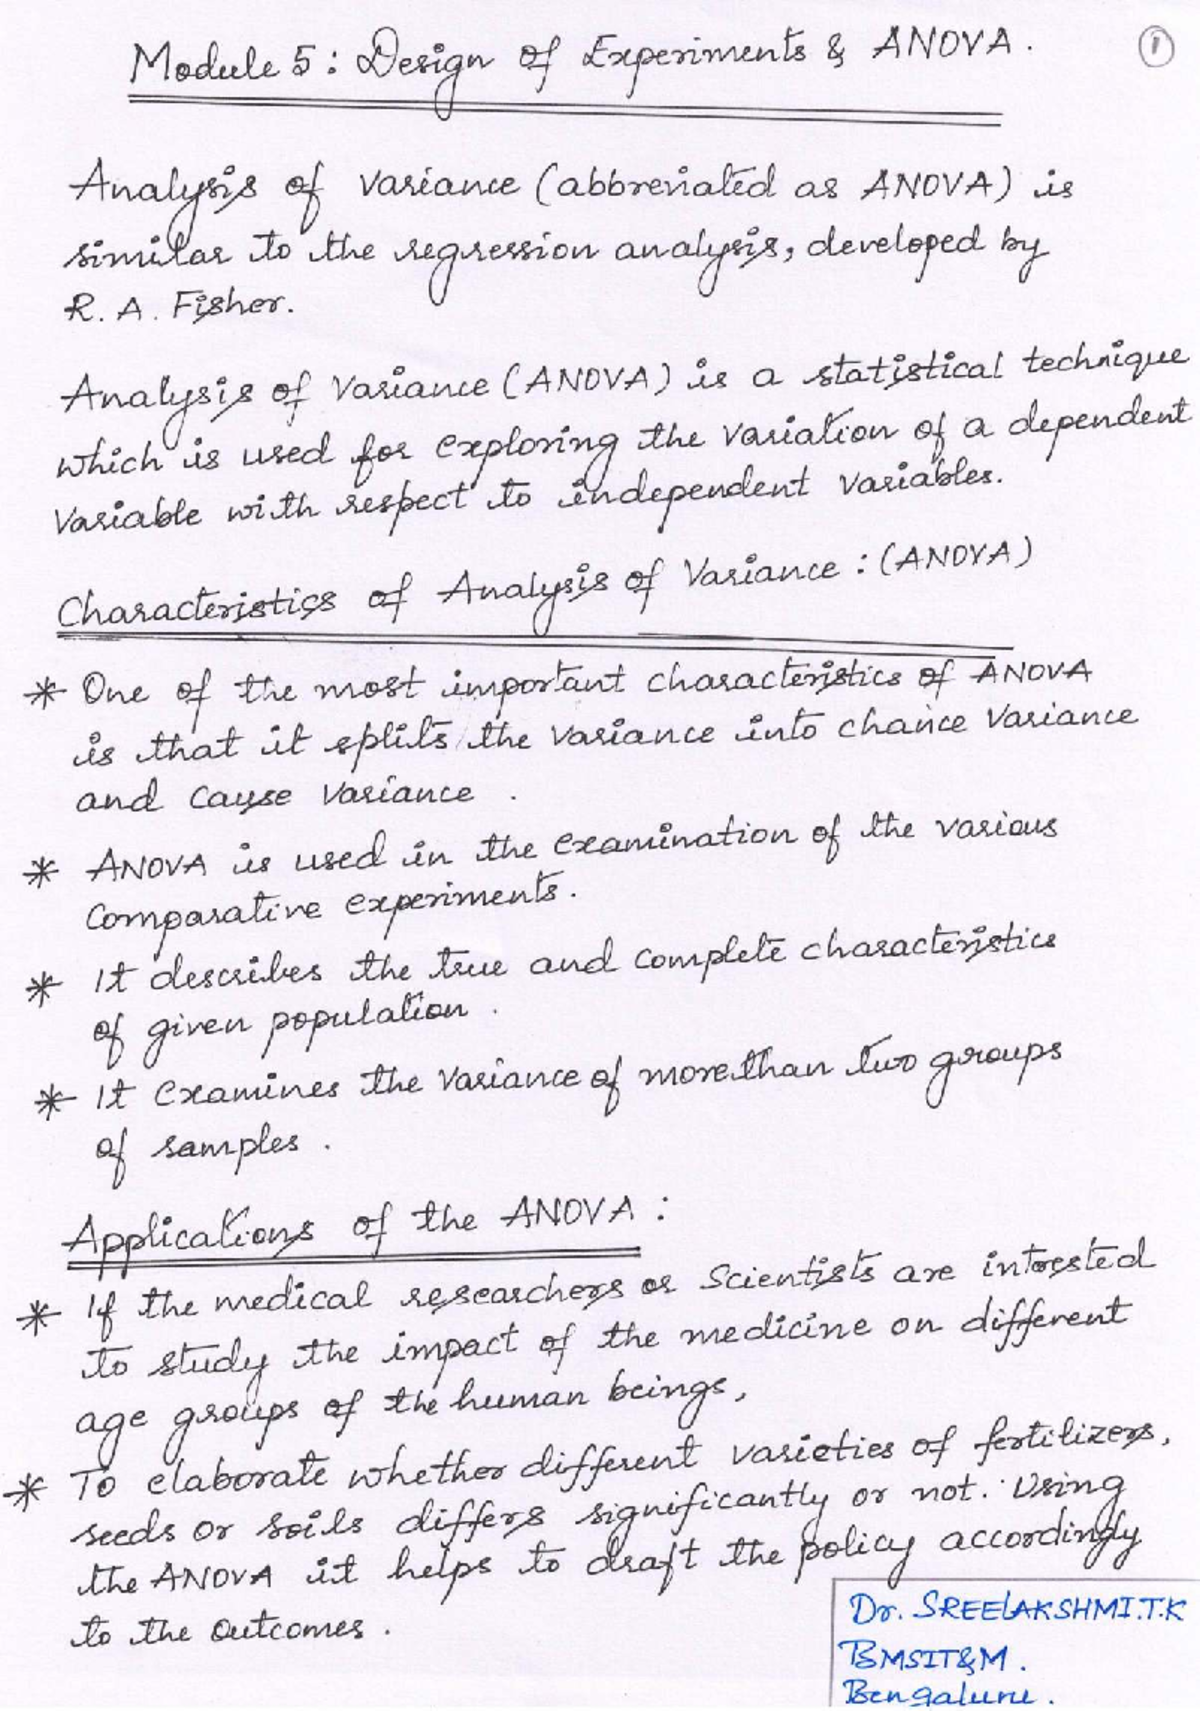 Module 5: Design of Experiments & ANOVA.
1
Analysis of variance (abbreviated as ANOVA) is
similar to the regression analysis, developed by
R. A. Fisher.
Analysis of Variance (ANOVA) is a statistical technique
which is used for exploring the variation of a dependent
variable with respect to independent variables.
Characteristics of Analysis of Variance: (ANOVA)
* One of the most important characteristics of ANOVA
is that it splits the variance into chance variance
and cause variance.
* ANOVA is used in the examination of the various
comparative experiments.
* It describes the true and complete characteristics
of given population.
* It examines the variance of more than two groups
of samples.
Applications of the ANOVA:
* If the medical researchers or Scientists are intrested
to study the impact of the medicine on different
age groups of the human beings,
* To elaborate whether different varieties of fertilizers,
seeds or soils differs significantly or not. Using
the ANOVA it helps to draft the policy accordingly
to the outcomes.
Dr. SREELAKSHMI.T.K
BMSIT&M.
Bengaluru.